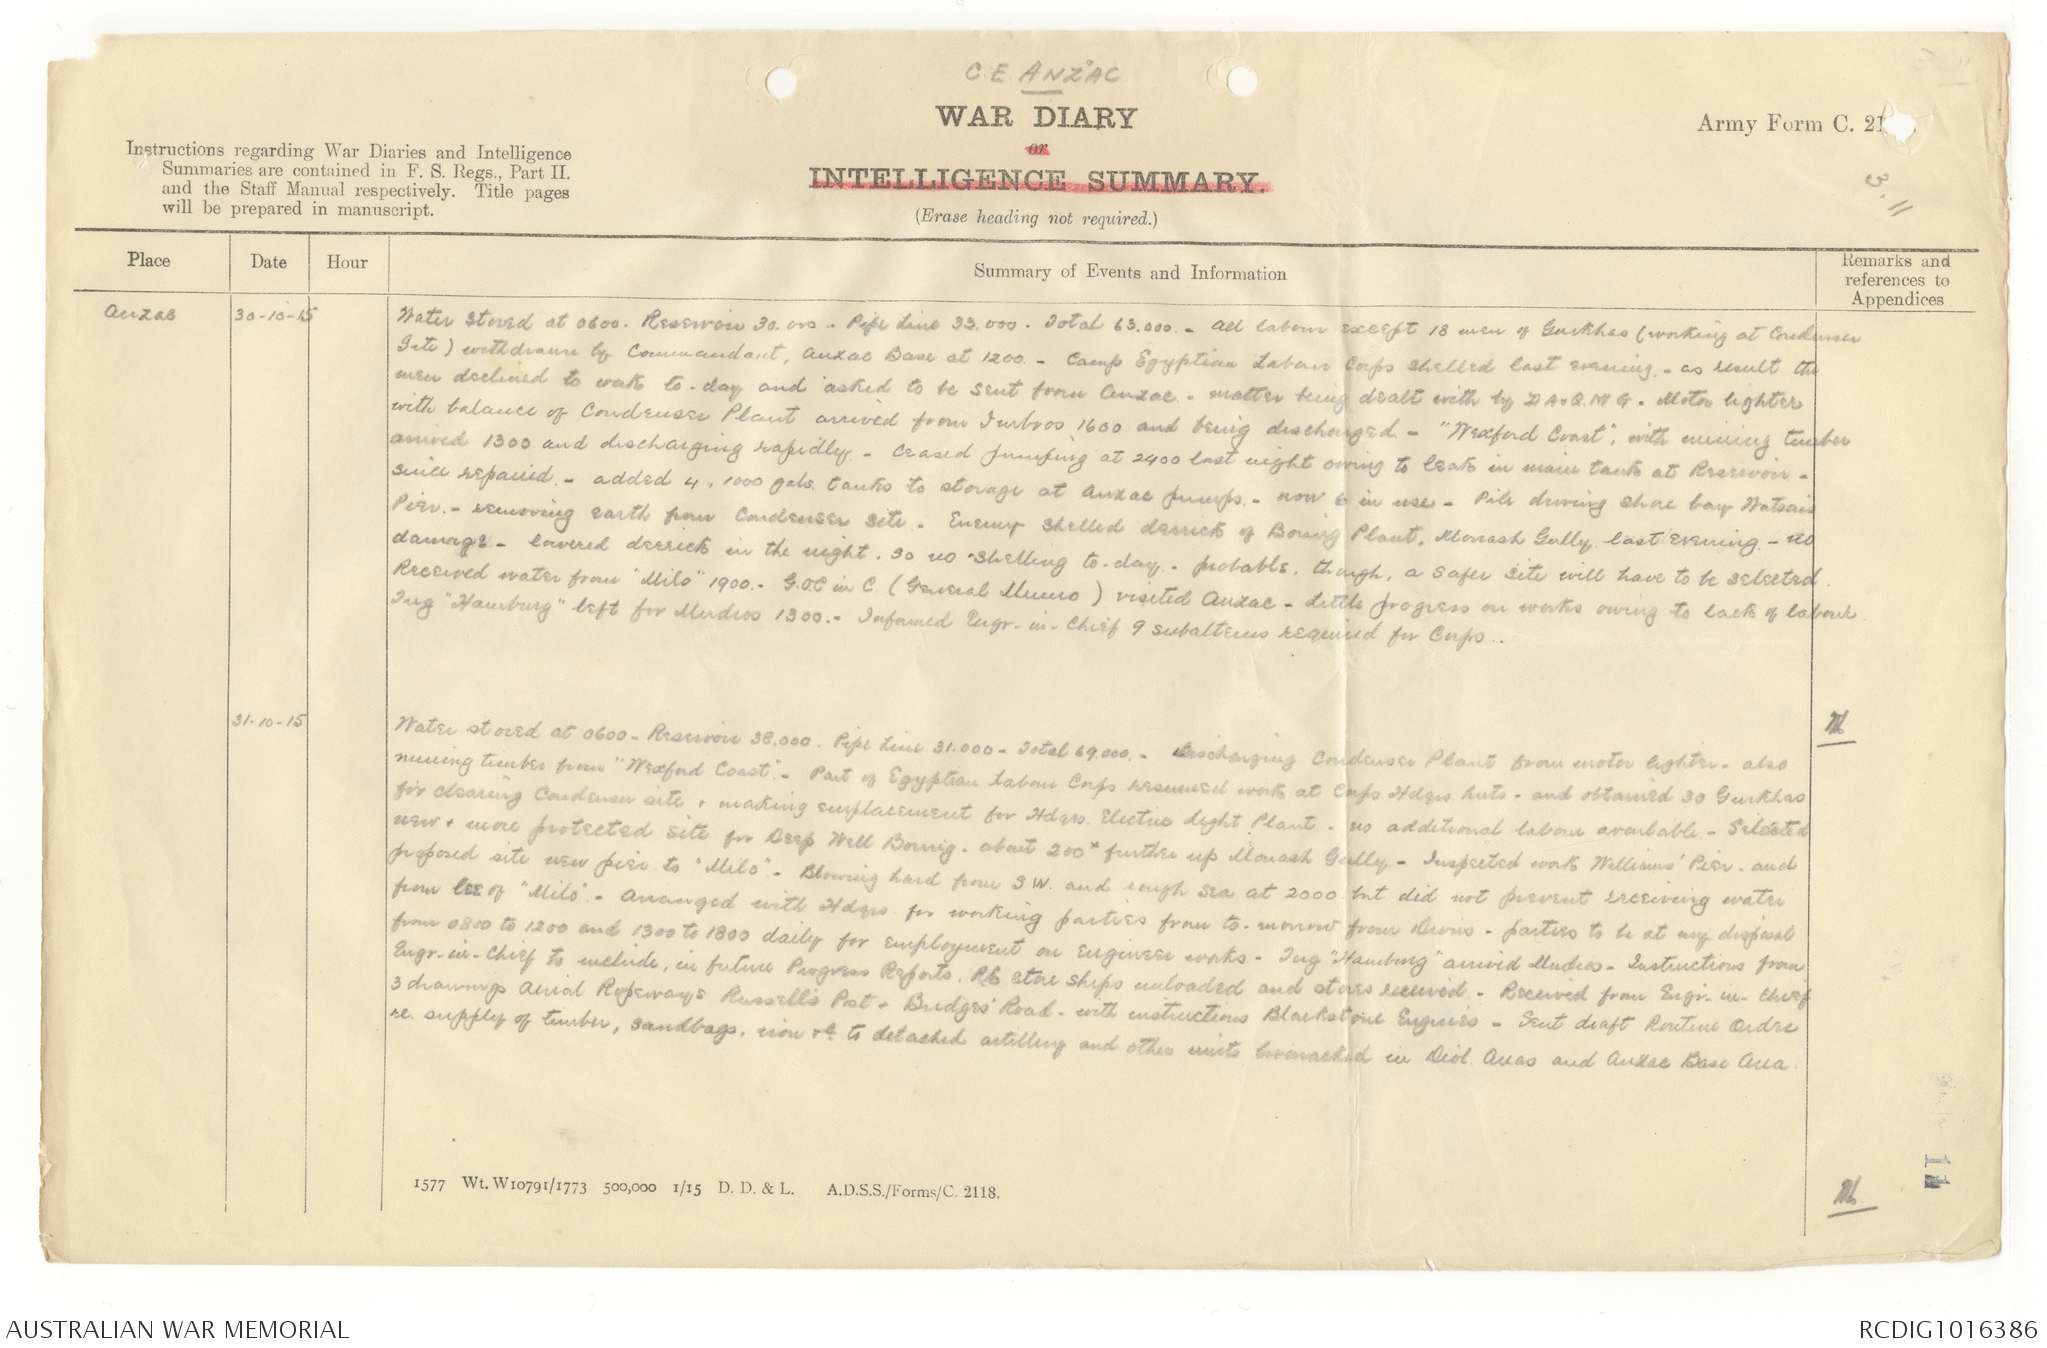 C E ANZAC
WAR DIARY
or
INTELLIGENCE SUMMARY.
(Erase heading not required.)
Army Form C. 21
3.11
Instructions regarding War Diaries and Intelligence
Summaries are contained in F. S. Regs., Part II.
and the Staff Manual respectively. Title pages
will be prepared in manuscript.
Place
Date
Hour
Summary of Events and Information
Remarks and
references to
Appendices
Anzac
30-10-15
Water stored at 0600. Reservoir 30.000. Pipe Line 33.000. Total 63.000. - All labour except 18 men of Gurkhas (working at Condenser
Site) withdrawn by Commandant, Anzac Base at 1200. - Camp Egyptian Labour Corps shelled last evening. - as result the
men declined to work to-day and asked to be sent from Anzac. - matter being dealt with by D A & Q M G. - Motor lighter
with balance of Condenser Plant arrived from Imbros 1600 and being discharged. - "Wexford Coast", with mining timber
arrived 1300 and discharging rapidly. - Ceased pumping at 2400 last night owing to leak in main tank at Reservoir -
since repaired. - added 4, 1000 gals. tanks to storage at Anzac pumps. - now 6 in use - Pile driving shore bay Watsons
Pier. - removing earth from Condenser site. - Enemy shelled derrick of Boring Plant, Monash Gully last evening - no
damage - lowered derrick in the night. So no shelling to-day. - probable, though, a safer site will have to be selected.
Received water from "Milo" 1900. - G.O.C in C. (General Munro) visited Anzac - Little progress on works owing to lack of labour.
Tug "Hamburg" left for Mudros 1300. - Informed Engr-in-Chief 9 subalterns required for Corps..
31-10-15
Water stored at 0600 - Reservoir 38.000. Pipe Line 31.000 - Total 69.000. - Discharging Condenser Plant from motor lighter - also
mining timber from "Wexford Coast". - Part of Egyptian Labour Corps resumed work at Corps Hdqrs huts - and obtained 30 Gurkhas
for clearing Condenser site & making emplacement for Hdqrs. Electric Light Plant. - no additional labour available - Selected
new & more protected site for Deep Well Boring - about 200ˣ further up Monash Gully. - Inspected work Williams' Pier. and
proposed site new pier to "Milo". - Blowing hard from S W. and rough sea at 2000 but did not prevent receiving water
from lee of "Milo". - Arranged with Hdqrs for working parties from to-morrow from Divns - parties to be at my disposal
from 0800 to 1200 and 1300 to 1800 daily for employment on engineer works - Tug "Hamburg" arrived Mudros - Instructions from
Engr-in-Chief to include, in future Progress Reports, RE store ships unloaded and stores received. - Received from Engr-in-Chief
3 drawings Aerial Ropeways Russell's Post & Bridges' Road - with instructions Blackstone Engines - Sent draft Routine Order
re. supply of timber, sandbags, iron &c to detached artillery and other units bivouacked in Divl. Areas and Anzac Base Area.
1577 Wt. W10791/1773 500,000 1/15 D. D. & L. A.D.S.S./Forms/C. 2118.
11
AUSTRALIAN WAR MEMORIAL
RCDIG1016386